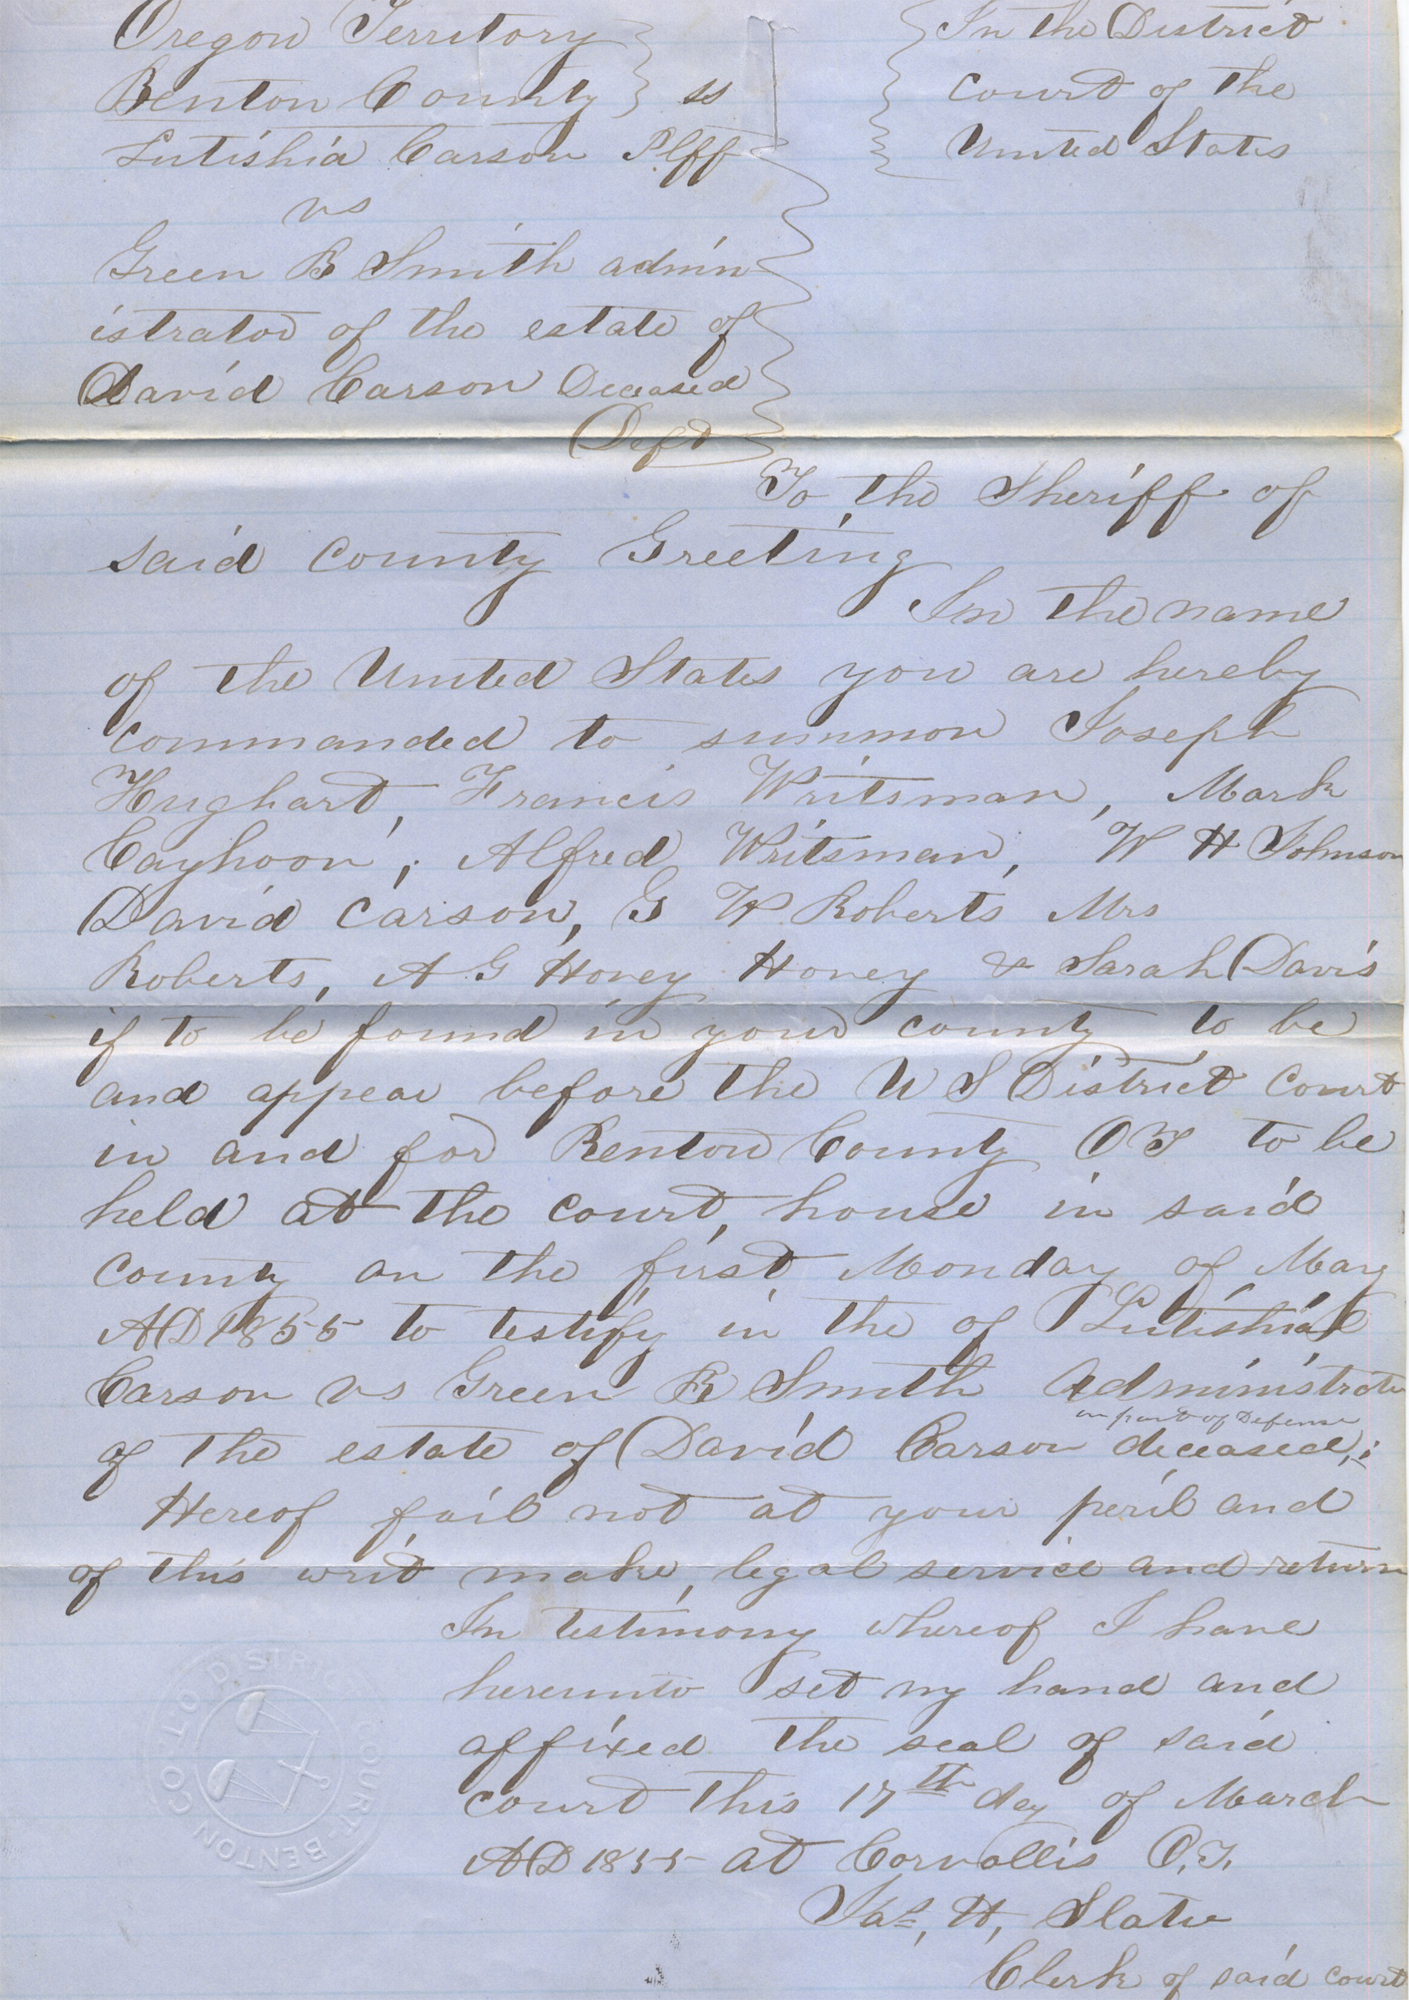 Oregon Territory
Benton County ss
In the District
court of the
United States
Lutishia Carson Plff
vs
Green B Smith admin
istrator of the estate of
David Carson Deceased
Deft
To the Sheriff of
said county Greeting
In the name
of the United States you are hereby
commanded to summon Joseph
Hughart, Francis Writsman, Mark
Cayhoon, Alfred Writsman, W H Johnson
David Carson, G W Roberts Mrs
Roberts, A G Hovey Hovey & Sarah Davis
if to be found in your county to be
and appear before the U S District Court
in and for Benton County O T to be
held at the court, house in said
county on the first Monday of May
AD 1855 to testify in the of Lutishia
Carson vs Green B Smith Administrator
on part of Defense
of the estate of David Carson deceased,;
Hereof fail not at your peril and
of this writ make, legal service and return
In testimony whereof I have
hereunto set my hand and
affixed the seal of said
court this 17th day of March
AD 1855 at Corvallis O.T.
Jas, H, Slater
Clerk of said court
DISTRICT COURT - BENTON CO